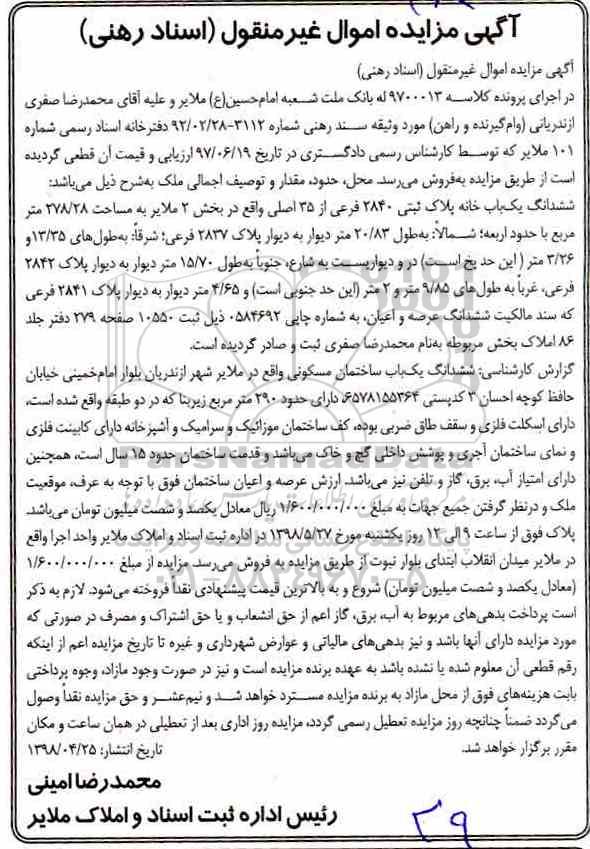 آگهی مزایده اموال غیرمنقول (اسناد رهنی)
آگهی مزایده اموال غیرمنقول (اسناد رهنی)
در اجرای پرونده کلاسه ۹۷۰۰۰۱۳ له بانک ملت شعبه امام‌حسین(ع) ملایر و علیه آقای محمدرضا صفری
ازندریانی (وام‌گیرنده و راهن) مورد وثیقه سند رهنی شماره ۳۱۱۲-۹۲/۰۲/۲۸ دفترخانه اسناد رسمی شماره
۱۰۱ ملایر که توسط کارشناس رسمی دادگستری در تاریخ ۹۷/۰۶/۱۹ ارزیابی و قیمت آن قطعی گردیده
است از طریق مزایده به‌فروش می‌رسد. محل، حدود، مقدار و توصیف اجمالی ملک به‌شرح ذیل می‌باشد:
ششدانگ یک‌باب خانه پلاک ثبتی ۲۸۴۰ فرعی از ۳۵ اصلی واقع در بخش ۲ ملایر به مساحت ۲۷۸/۲۸ متر
مربع با حدود اربعه؛ شمالاً: به‌طول ۲۰/۸۳ متر دیوار به دیوار پلاک ۲۸۳۷ فرعی؛ شرقاً: به‌طول‌های ۱۳/۳۵و
۳/۲۶ متر ( این حد پخ است) در و دیواریست به شارع، جنوباً به‌طول ۱۵/۷۰ متر دیوار به دیوار پلاک ۲۸۴۲
فرعی، غرباً به طول‌های ۹/۸۵ متر و ۲ متر (این حد جنوبی است) و ۴/۶۵ متر دیوار به دیوار پلاک ۲۸۴۱ فرعی
که سند مالکیت ششدانگ عرصه و اعیان، به شماره چاپی ۰۵۸۴۶۹۲ ذیل ثبت ۱۰۵۵۰ صفحه ۲۷۹ دفتر جلد
۸۶ املاک بخش مربوطه به‌نام محمدرضا صفری ثبت و صادر گردیده است.
گزارش کارشناسی: ششدانگ یک‌باب ساختمان مسکونی واقع در ملایر شهر ازندریان بلوار امام‌خمینی خیابان
حافظ کوچه احسان ۳ کدپستی ۶۵۷۸۱۵۵۳۶۴، دارای حدود ۲۹۰ متر مربع زیربنا که در دو طبقه واقع شده است،
دارای اسکلت فلزی و سقف طاق ضربی بوده، کف ساختمان موزائیک و سرامیک و آشپزخانه دارای کابینت فلزی
و نمای ساختمان آجری و پوشش داخلی گچ و خاک می‌باشد و قدمت ساختمان حدود ۱۵ سال است، همچنین
دارای امتیاز آب، برق، گاز و تلفن نیز می‌باشد. ارزش عرصه و اعیان ساختمان فوق با توجه به عرف، موقعیت
ملک و درنظر گرفتن جمیع جهات به مبلغ ۱/۶۰۰/۰۰۰/۰۰۰ ریال معادل یکصد و شصت میلیون تومان می‌باشد.
پلاک فوق از ساعت ۹ الی ۱۲ روز یکشنبه مورخ ۱۳۹۸/۵/۲۷ در اداره ثبت اسناد و املاک ملایر واحد اجرا واقع
در ملایر میدان انقلاب ابتدای بلوار نبوت از طریق مزایده به فروش می‌رسد. مزایده از مبلغ ۱/۶۰۰/۰۰۰/۰۰۰
(معادل یکصد و شصت میلیون تومان) شروع و به بالاترین قیمت پیشنهادی نقداً فروخته می‌شود. لازم به ذکر
است پرداخت بدهی‌های مربوط به آب، برق، گاز اعم از حق انشعاب و یا حق اشتراک و مصرف در صورتی که
مورد مزایده دارای آنها باشد و نیز بدهی‌های مالیاتی و عوارض شهرداری و غیره تا تاریخ مزایده اعم از اینکه
رقم قطعی آن معلوم شده یا نشده باشد به عهده برنده مزایده است و نیز در صورت وجود مازاد، وجوه پرداختی
بابت هزینه‌های فوق از محل مازاد به برنده مزایده مسترد خواهد شد و نیم‌عشر و حق مزایده نقداً وصول
می‌گردد ضمناً چنانچه روز مزایده تعطیل رسمی گردد، مزایده روز اداری بعد از تعطیلی در همان ساعت و مکان
مقرر برگزار خواهد شد. تاریخ انتشار: ۱۳۹۸/۰۴/۲۵
محمدرضا امینی
رئیس اداره ثبت اسناد و املاک ملایر
۲۹
ParsNamadData
۰۲۱-۸۸۳۴۹۶۷۰-۵